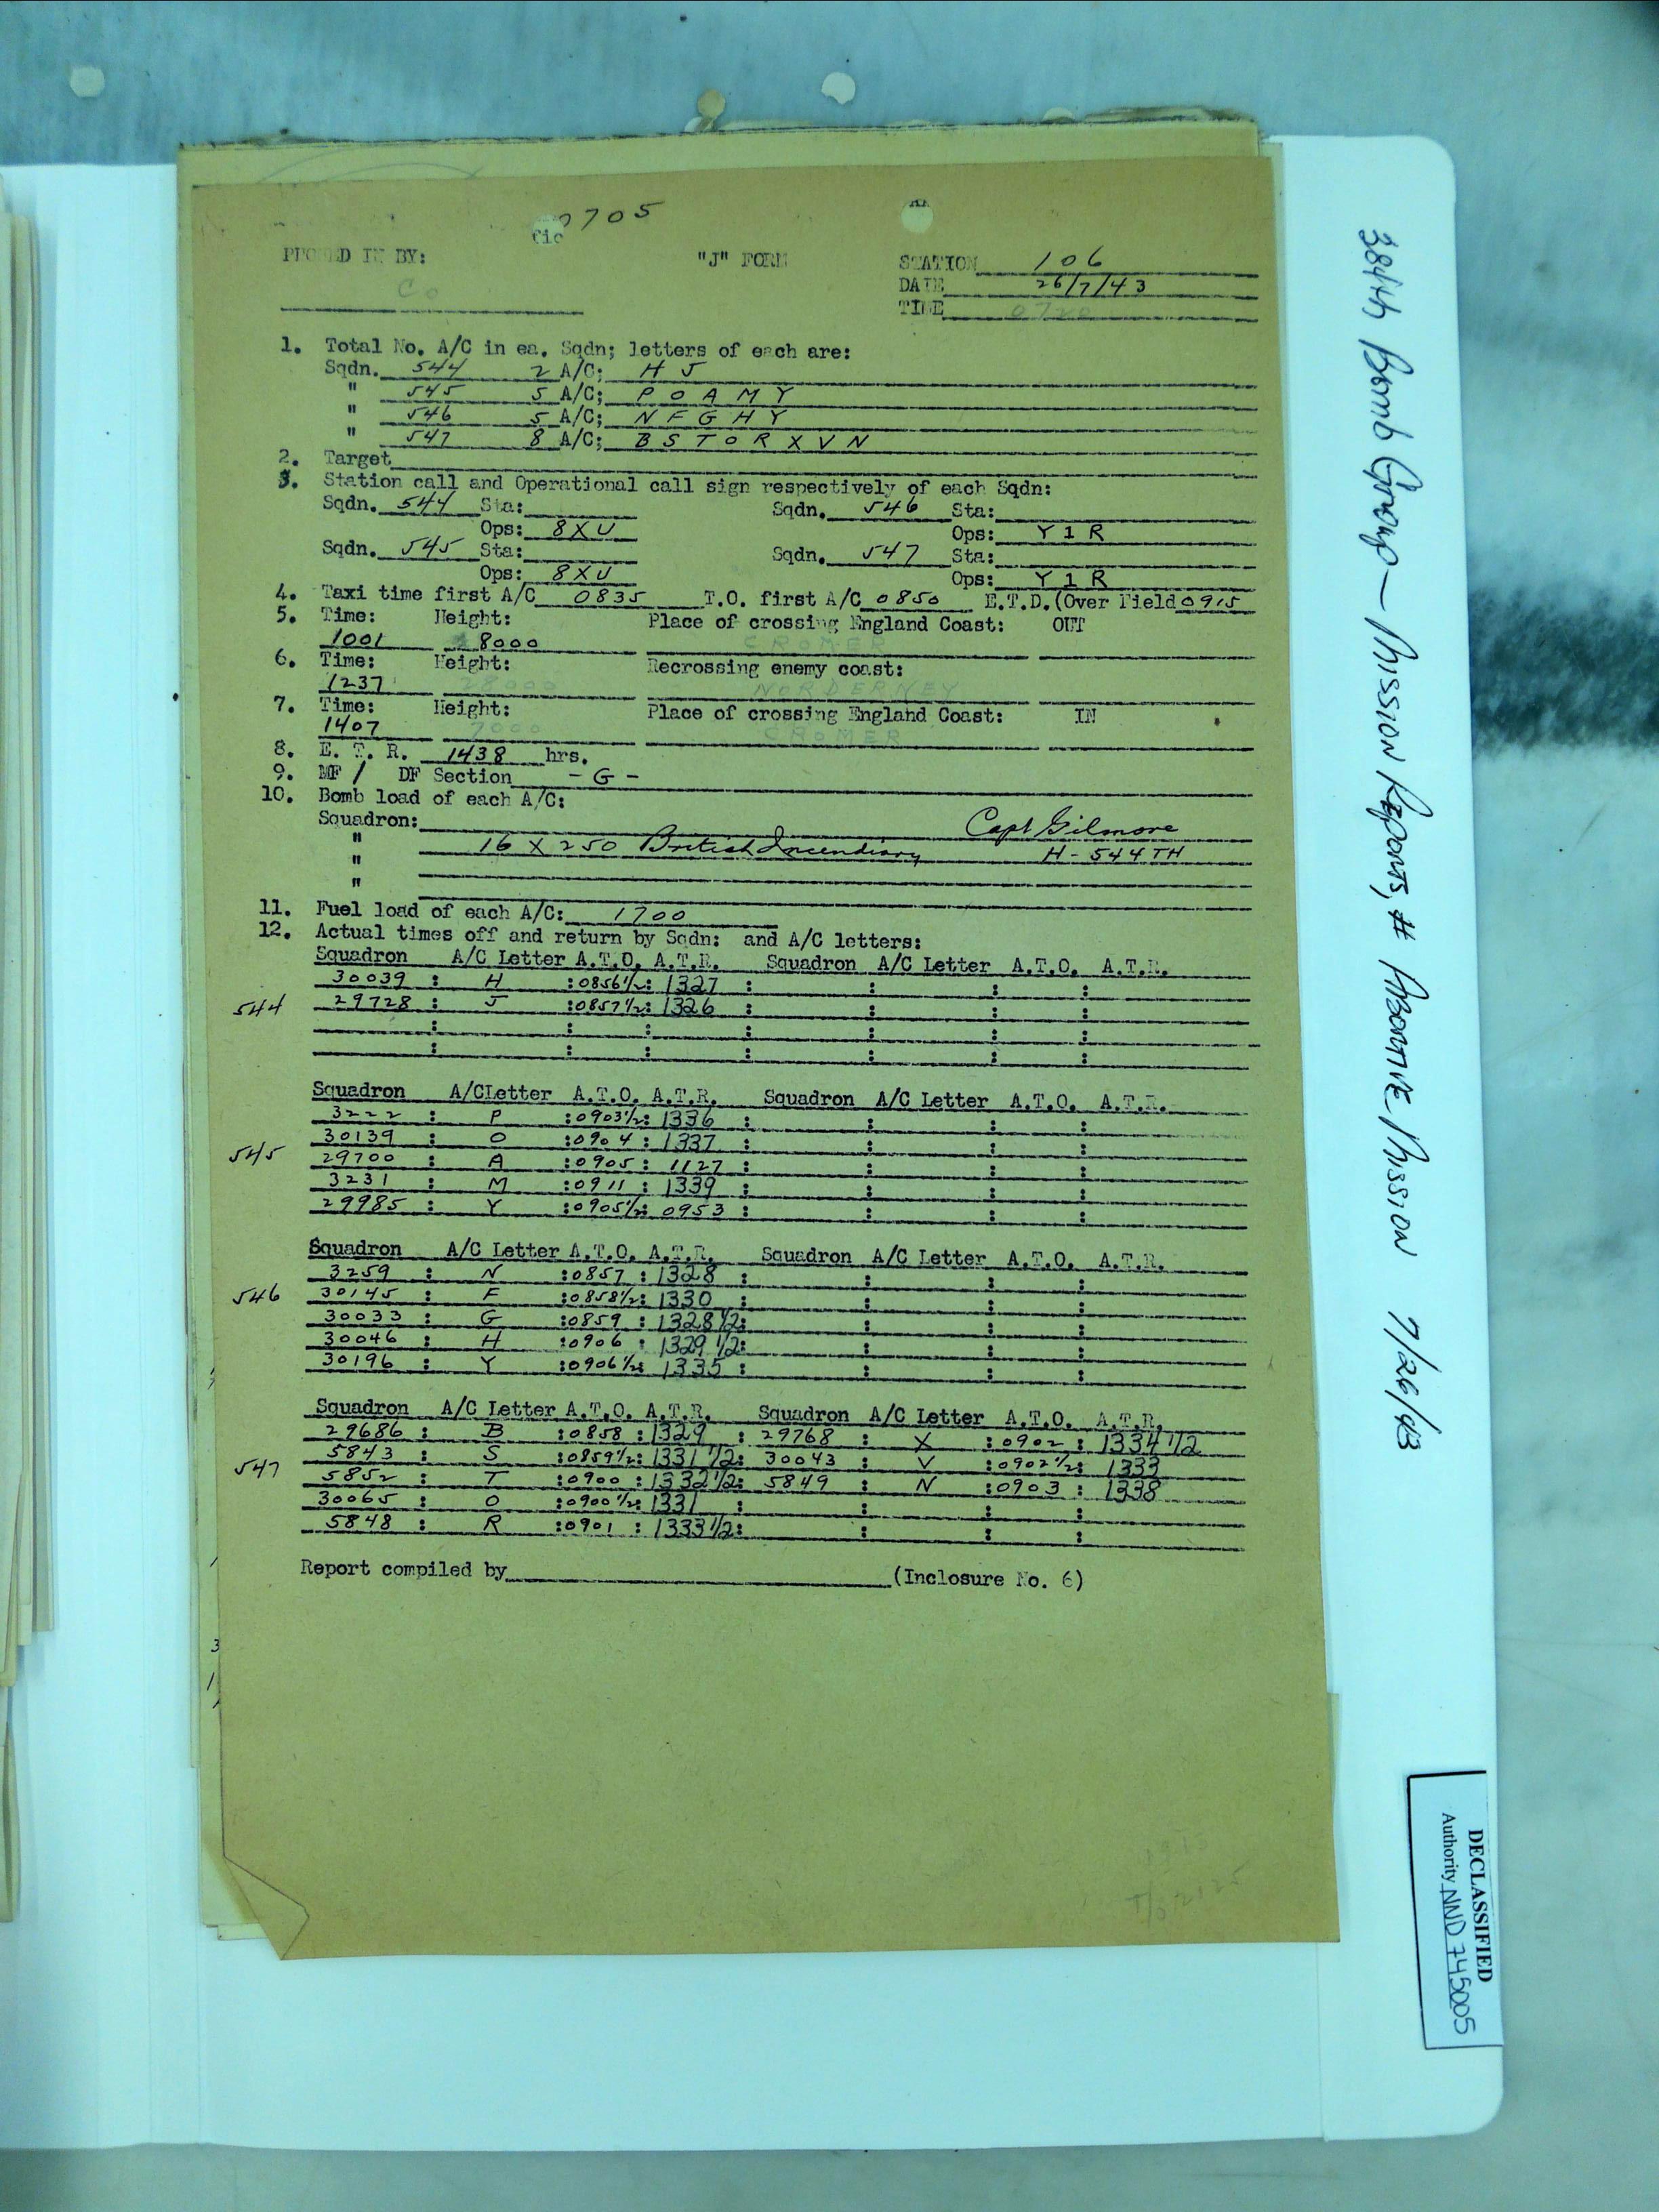 0705
PHONED IN BY: "J" FORM STATION 106
Co DATE 26/7/43
TIME 0720
1. Total No. A/C in ea. Sqdn; letters of each are:
Sqdn. 544 2 A/C; H J
" 545 5 A/C; P O A M Y
" 546 5 A/C; N F G H Y
" 547 8 A/C; B S T O R X V N
2. Target
3. Station call and Operational call sign respectively of each Sqdn:
Sqdn. 544 Sta: Sqdn. 546 Sta:
Ops: 8XU Ops: Y1R
Sqdn. 545 Sta: Sqdn. 547 Sta:
Ops: 8XU Ops: Y1R
4. Taxi time first A/C 0835 T.O. first A/C 0850 E.T.D.(Over Field 0915
5. Time: Height: Place of crossing England Coast: OUT
1001 8000 CROMER
6. Time: Height: Recrossing enemy coast:
1237 28000 NORDERNEY
7. Time: Height: Place of crossing England Coast: IN
1407 7000 CROMER
8. E. T. R. 1438 hrs.
9. MF / DF Section - G -
10. Bomb load of each A/C:
Squadron: Capt Gilmore
" 16 X 250 British Incendiary H - 544TH
"
"
11. Fuel load of each A/C: 1700
12. Actual times off and return by Sqdn: and A/C letters:
Squadron A/C Letter A.T.O. A.T.R. Squadron A/C Letter A.T.O. A.T.R.
30039 : H :0856½: 1327 : : : :
544 29728 : J :0857½: 1326 : : : :
: : : : : : :
: : : : : : :
Squadron A/CLetter A.T.O. A.T.R. Squadron A/C Letter A.T.O. A.T.R.
3222 : P :0903½: 1336 : : : :
30139 : O :0904 : 1337 : : : :
545 29700 : A :0905 : 1127 : : : :
3231 : M :0911 : 1339 : : : :
29985 : Y :0905½: 0953 : : : :
Squadron A/C Letter A.T.O. A.T.R. Squadron A/C Letter A.T.O. A.T.R.
3259 : N :0857 : 1328 : : : :
546 30145 : F :0858½: 1330 : : : :
30033 : G :0859 : 1328 1/2: : : :
30046 : H :0906 : 1329 1/2: : : :
30196 : Y :0906½: 1335 : : : :
Squadron A/C Letter A.T.O. A.T.R. Squadron A/C Letter A.T.O. A.T.R.
29686 : B :0858 : 1329 : 29768 : X :0902 : 1334 1/2
5843 : S :0859½: 1331 1/2: 30043 : V :0902½: 1333
547 5852 : T :0900 : 1332 1/2: 5849 : N :0903 : 1338
30065 : O :0900½: 1331 : : : :
5848 : R :0901 : 1333 1/2: : : :
Report compiled by (Inclosure No. 6)
384th Bomb Group — Mission Reports, # Abortive Mission 7/26/43
DECLASSIFIED
Authority NND 745005